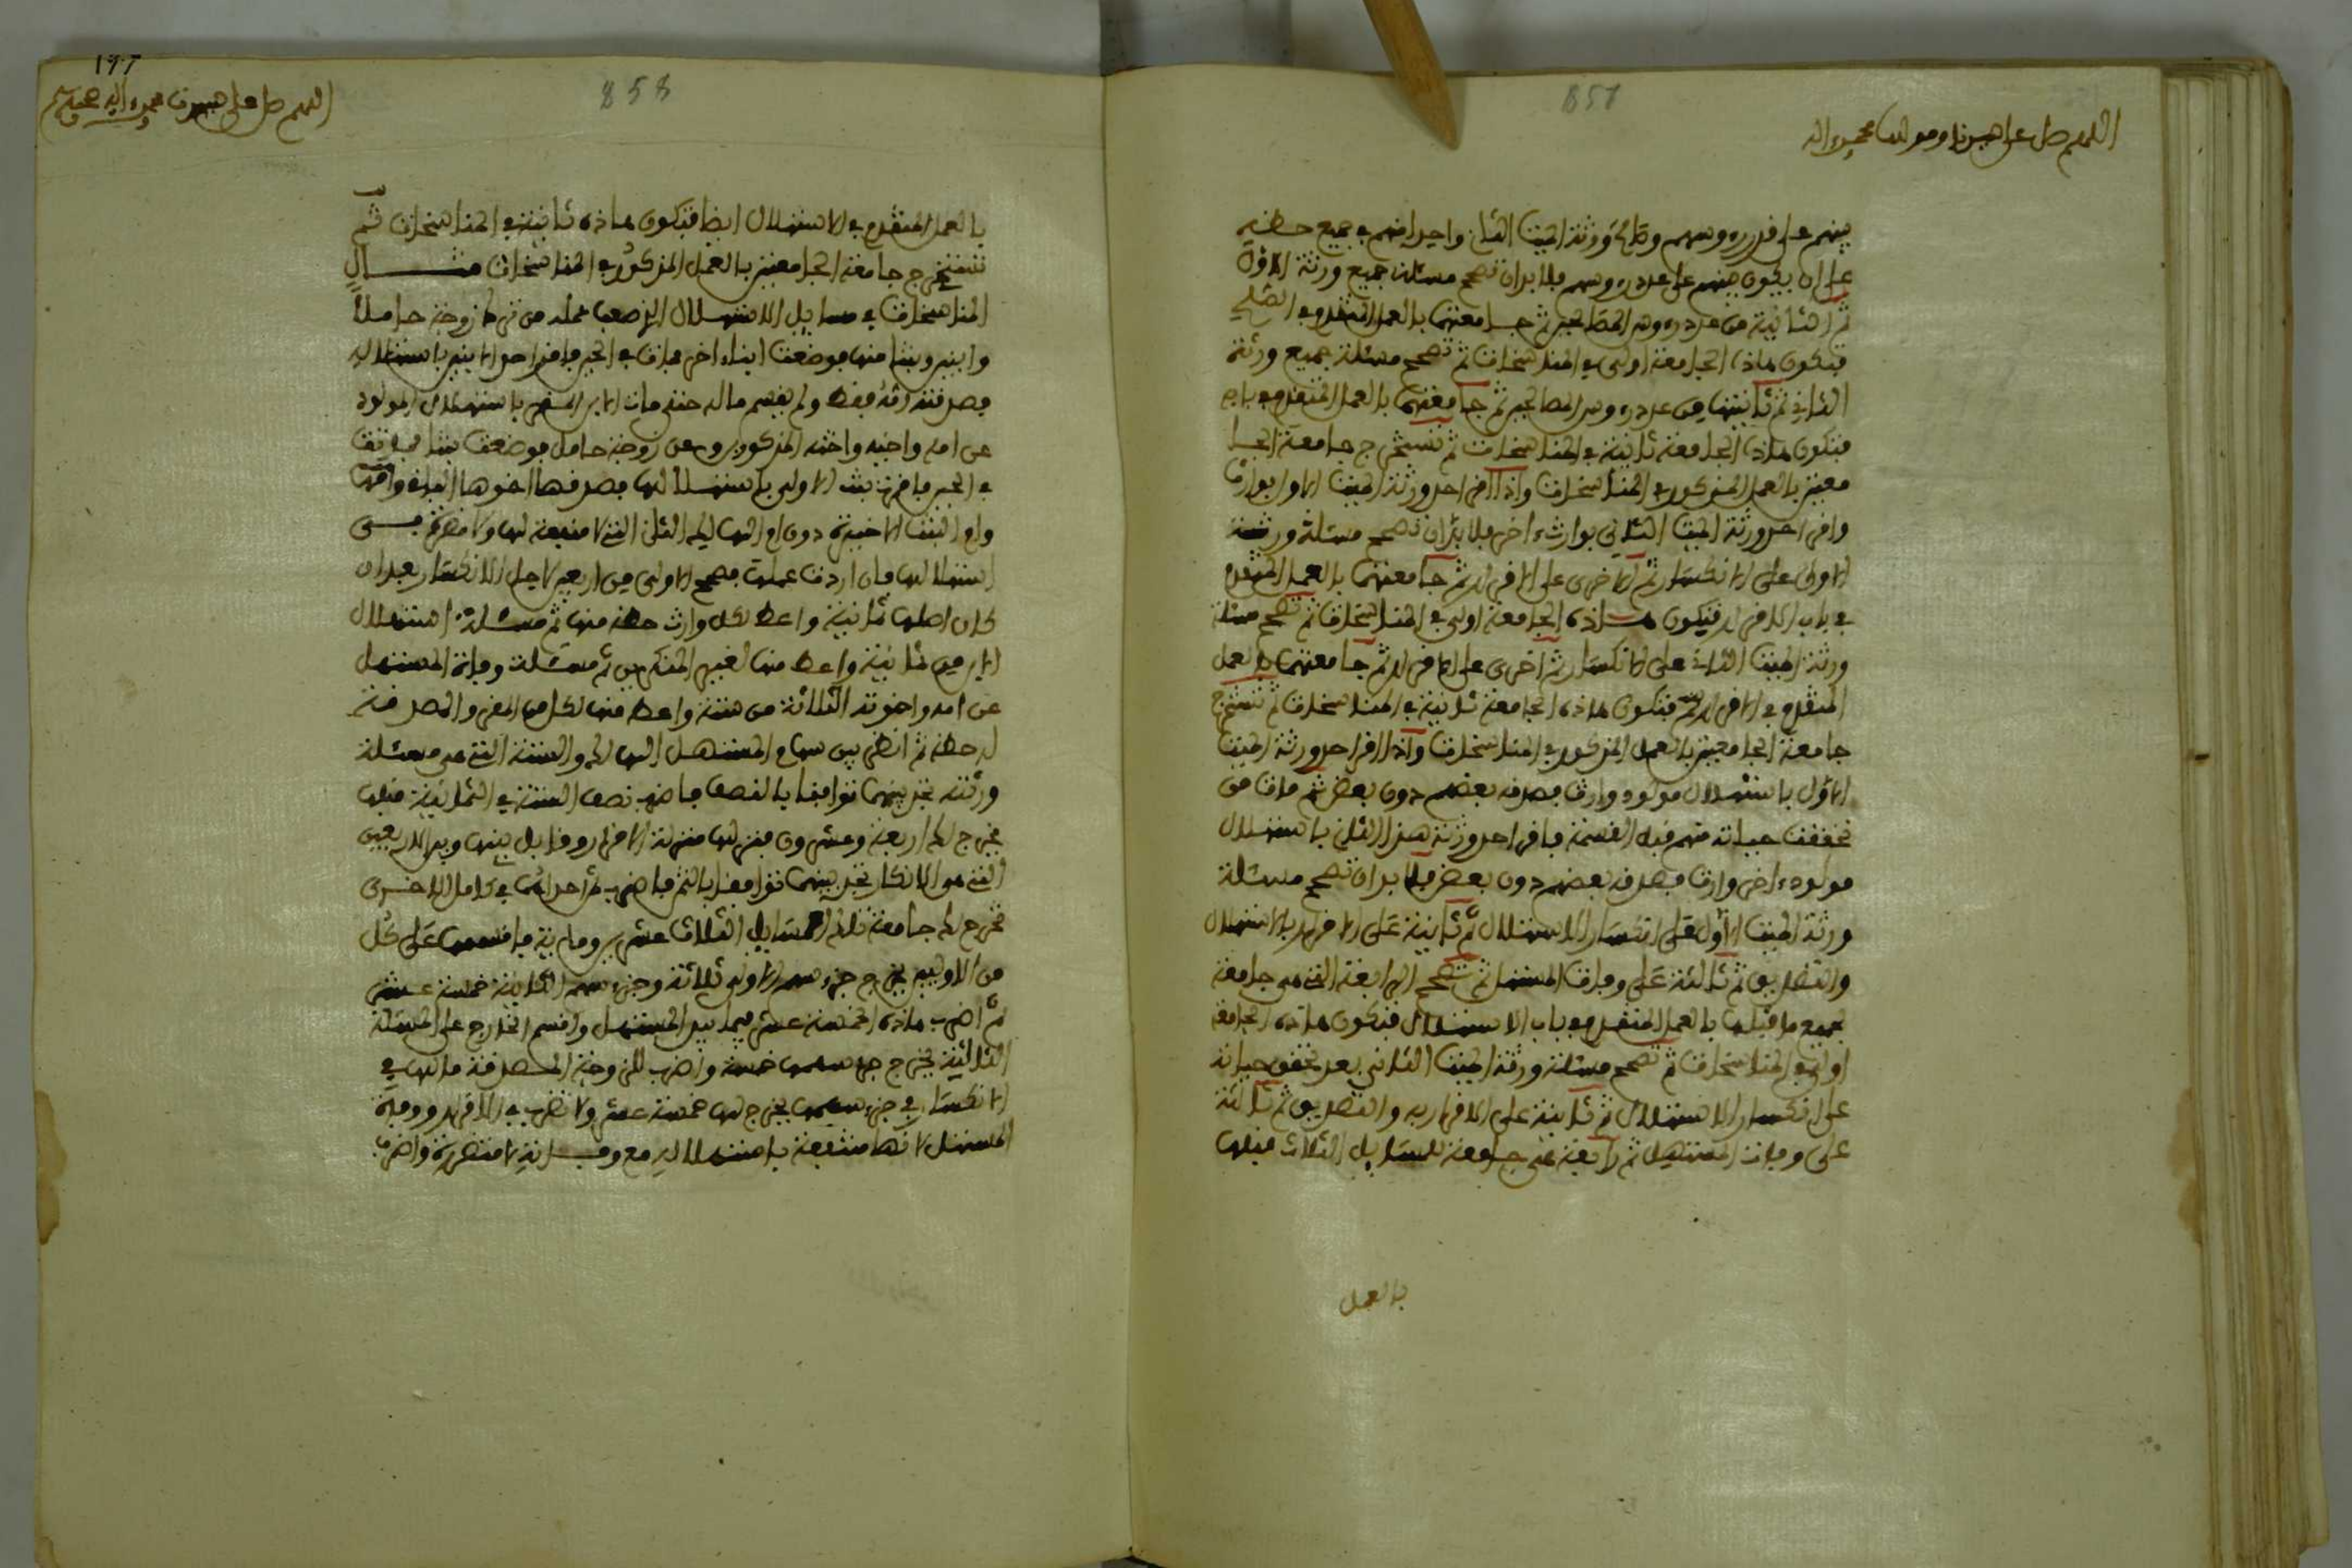 اللهم صل على سيدنا ومولانا محمد وءاله
857
بينهم على قدر رءوسهم وصالح ورثة الميت الثاني واحدا منهم في جميع حظه
على ان يكون بينهم على عدد رءوسهم فلا بد ان تصحح مسئلة جميع ورثة الاول
ثم الثانية من عدد رءوس المصالحين ثم جامعتهما بالعمل المتقدم في الصلح
فتكون هاذه الجامعة اولى في المناسخات ثم تصحح مسئلة جميع ورثة
الثاني ثم ثانيتها من عدد رءوس المصالحين ثم جامعتهما بالعمل المتقدم في بابه
فتكون هاذه الجامعة ثانية في المناسخات ثم تستخرج جامعة الجا
معتين بالعمل المذكور في المناسخات واذا اقر احد ورثة الميت الاول بوارث
واقر احد ورثة الميت الثاني بوارث ءاخر فلا بد ان تصحح مسئلة ورثة
الاولى على الانكسار ثم الاخرى على الاقرار ثم جامعتهما بالعمل المتقدم
في باب الاقرار فتكون هاذه الجامعة اولى في المناسخات ثم تصحح مسئلة
ورثة الميت الثاني على الانكسار ثم اخرى على الاقرار ثم جامعتهما بالعمل
المتقدم في الاقرار فتكون هاذه الجامعة ثانية في المناسخات ثم تستخرج
جامعة الجامعتين بالعمل المذكور في المناسخات واذا اقر احد ورثة الميت
الاول باستهلال مولود وارث فصدقه بعضهم دون بعض ثم مات من
تحققت حياته منهم قبل القسمة فاقر احد ورثة هذا الثاني باستهلال
مولود ءاخر وارث فصدقه بعضهم دون بعض فلا بد ان تصحح مسئلة
ورثة الميت الاول على انكسار الاستهلال ثم ثانية على الاقرار بالاستهلال
والتصديق ثم ثالثة على وفات المستهل ثم تصحح الرابعة التي هي جامعة
لجميع ما قبلها بالعمل المتقدم في باب الاستهلال فتكون هاذه الجامعة
اولى في المناسخات ثم تصحح مسئلة ورثة الميت الثاني بعد تحقق حياته
على انكسار الاستهلال ثم ثانية على الاقرار به والتصديق ثم ثالثة
على وفات المستهل ثم رابعة هي جامعة للمسايل الثلاث قبلها
بالعمل
197
اللهم صل على سيدنا محمد وءاله وصحبه وسلم
858
بالعمل المتقدم في الاستهلال ايضا فتكون هاذه ثانية في المناسخات ثم
تستخرج جامعة الجامعتين بالعمل المذكور في المناسخات مثال
المناسخات في مسايل الاستهلال الاصعب عمله من ترك زوجة حاملا
وابنين وبنتا منها فوضعت ابناء اخر فمات في الحين فاقر احد الابنين باستهلاله
فصدقته امه فقط ولم يقسم ماله حتى مات الابن المقر باستهلال المولود
عن امه واخيه واخته المذكورين وعن زوجة حامل فوضعت بنتا فماتت
في الحين فاقرت بنت الاولى باستهلالها فصدقها اخوها الباقي وامها
وام البنت الاخيرة دون ام الهالك الثاني التي لا منفعة لها ولا مضرة في
استهلالها فان اردت عملها فصحح الاولى من اربعين لاجل الانكسار بعد ان
كان اصلها ثمانية واعط لكل وارث حظه منها ثم مسئلة استهلال
الابن من ثمانية واعط منها لغير المنكرين ثم مسئلة وفاة المستهل
عن امه واخوته الثلاثة من ستة واعط منها لكل من المقر والمصدقة
له حظه ثم انظر بين سهام المستهل الهالك والستة التي هي مسئلة
ورثته تجد بينهما توافقا بالنصف فاضرب نصف الستة في الثمانية قبلها
يخرج لك اربعة وعشرون فنزلها منزلة الاقرار وقابل بينها وبين الاربعين
التي هي الانكار تجد بينهما توافقا بالثمن فاضرب ثمن احداهما في كامل الاخرى
تخرج لك جامعة تلك المسايل الثلاث عشرين ومائة فاقسمها على كل
من الاوليين يخرج جزء سهم الاولى ثلاثة وجزء سهم الثانية خمسة عشر
ثم اضرب هاذه الخمسة عشر فيما بيد المستهل واقسم الخارج على المسئلة
الثالثة يخرج جزء سهمها خمسة واضرب للزوجة المصدقة ما لها في
الانكسار في جزء سهمها يخرج لها خمسة عشر ولا تضرب في الاقرار ووفاة
المستهل لانها منتفعة باستهلاله مع وفاته لا متضررة واضرب